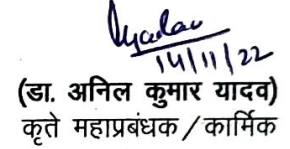 Yadav
14/11/22
(डा. अनिल कुमार यादव)
कृते महाप्रबंधक / कार्मिक